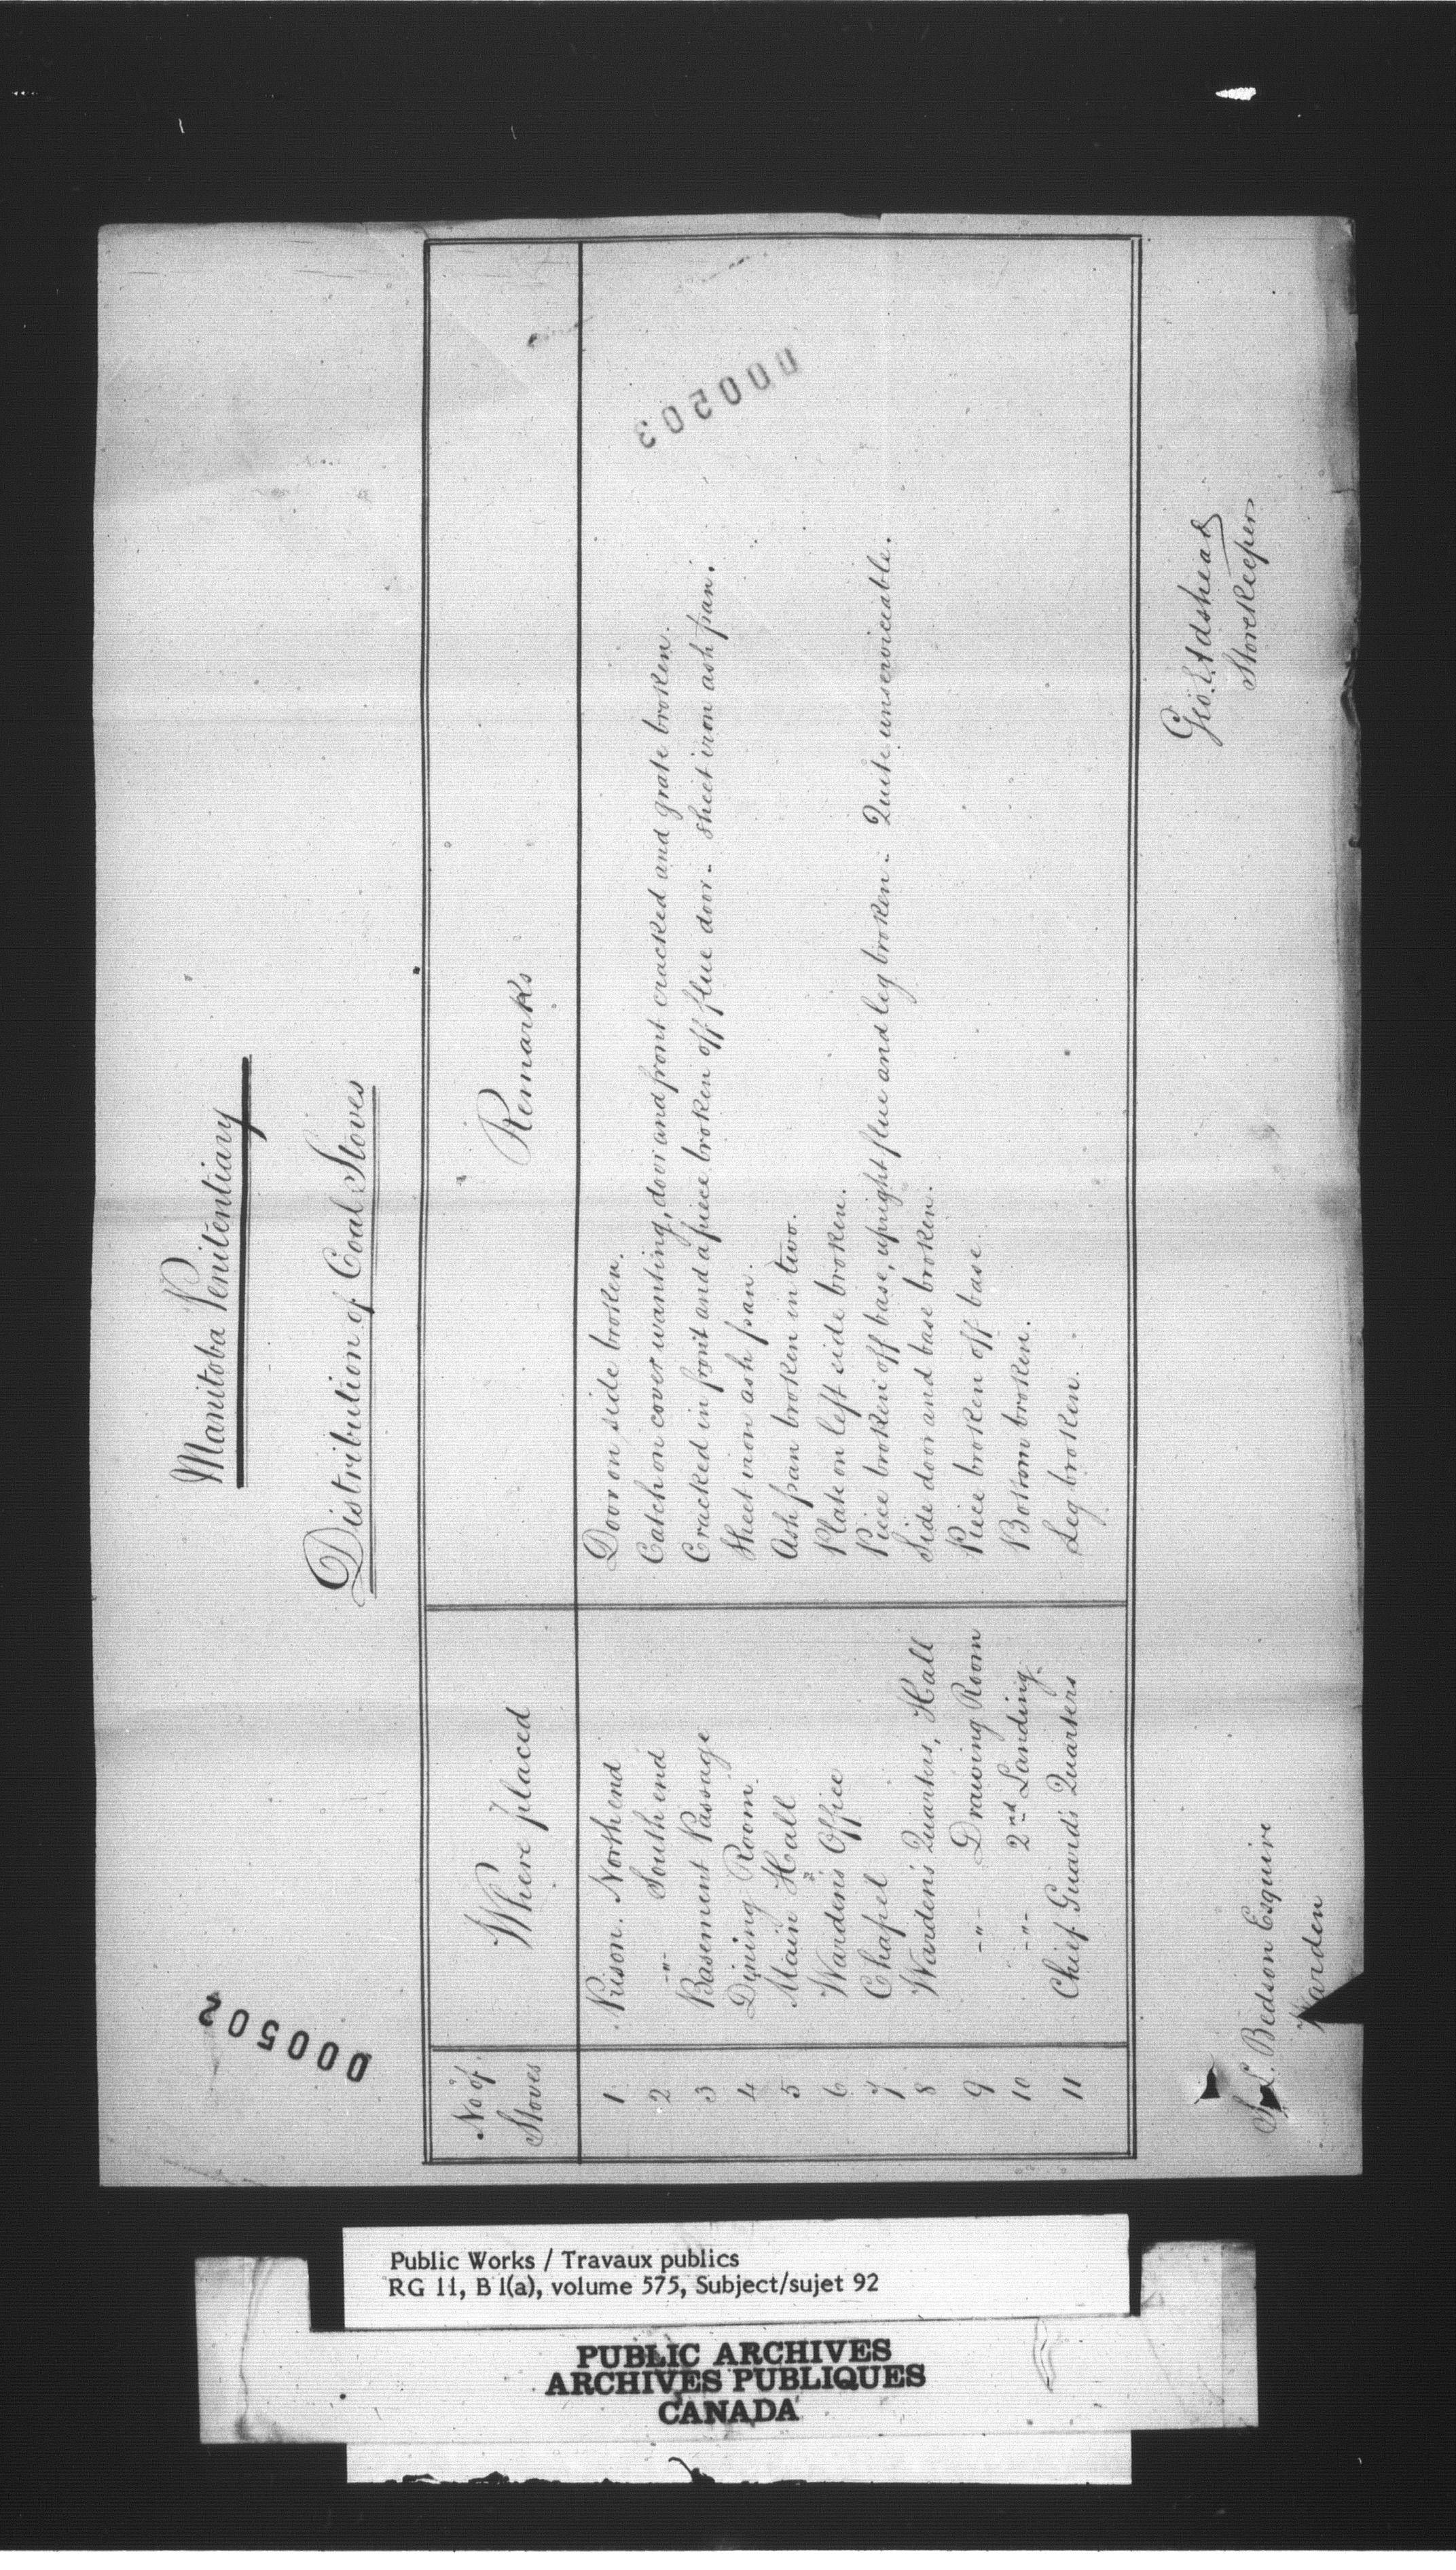 000502
Manitoba Penitentiary
Distribution of Coal Stoves
No of Stoves | Where placed | Remarks
1 | Prison. North end | Door on side broken.
2 | -"- South end | Catch on cover wanting, door and front cracked and grate broken.
3 | Basement Passage | Cracked in front and a piece broken off flue door - sheet iron ash pan.
4 | Dining Room | Sheet iron ash pan.
5 | Main Hall | Ash pan broken in two.
6 | Warden's Office | Plate on left side broken.
7 | Chapel | Piece broken off base, upright flue and leg broken - Quite unserviceable.
8 | Warden's Quarters, Hall | Side door and base broken.
9 | -"- Drawing Room | Piece broken off base.
10 | -"- 2nd Landing. | Bottom broken.
11 | Chief Guard's Quarters | Leg broken.
000503
Geo. E. Adshead
Storekeeper
S. L. Bedson Esquire
Warden
Public Works / Travaux publics
RG 11, B 1(a), volume 575, Subject/sujet 92
PUBLIC ARCHIVES
ARCHIVES PUBLIQUES
CANADA